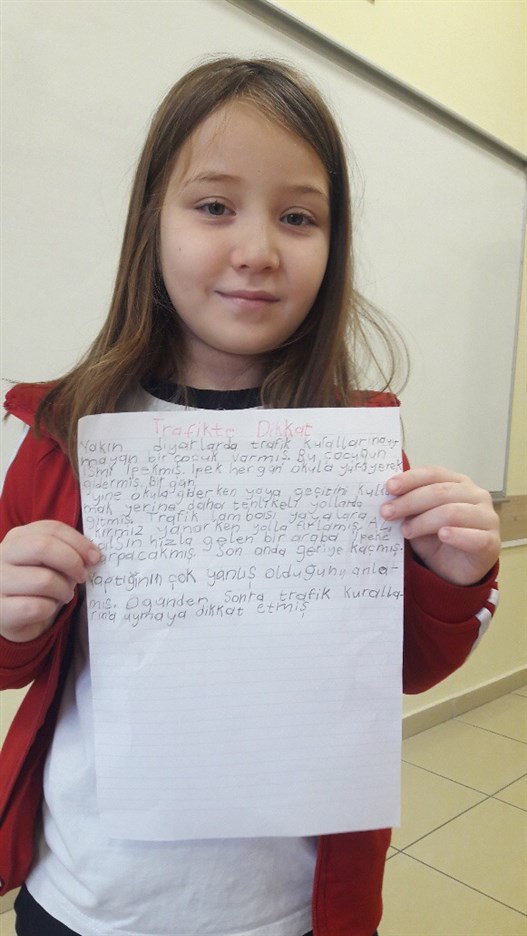 Trafikte Dikkat
Yakın diyarlarda trafik kurallarına uy
mayan bir çocuk varmış. Bu çocuğun
ismi İpekmiş. İpek hergün okula yürüyerek
gidermiş. Bir gün
yine okula giderken yaya geçitini kullan
mak yerine daha tehlikeli yollarda
gitmiş. Trafik lambası yayalara
kırmızı yanarken yolla fırlamış.
hızla gelen bir araba İpeke
çarpacakmış. Son anda geriye kaçmış.
Yaptığının çok yanlış olduğunu anlat
mış. Ogünden sonra trafik kuralla-
rına uymaya dikkat etmiş